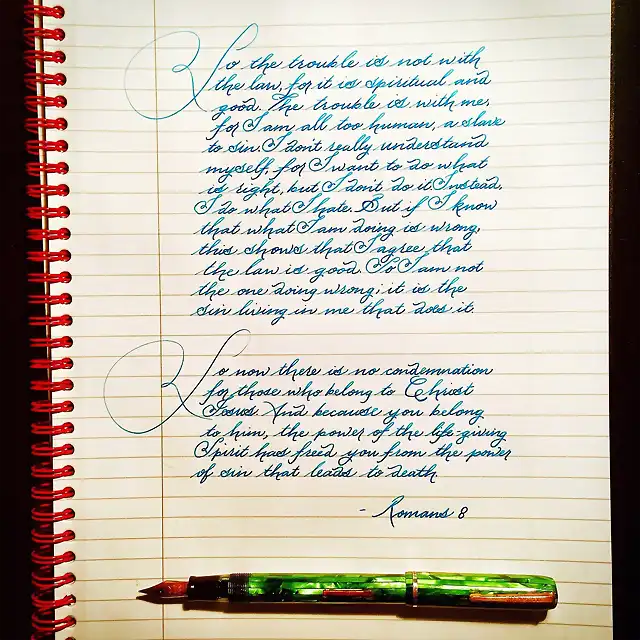 So the trouble is not with
the law, for it is spiritual and
good. The trouble is with me,
for I am all too human, a slave
to sin. I don't really understand
myself, for I want to do what
is right, but I don't do it. Instead,
I do what I hate. But if I know
that what I am doing is wrong,
this shows that I agree that
the law is good. So I am not
the one doing wrong; it is the
sin living in me that does it.
So now there is no condemnation
for those who belong to Christ
Jesus. And because you belong
to him, the power of the life-giving
Spirit has freed you from the power
of sin that leads to death.
- Romans 8